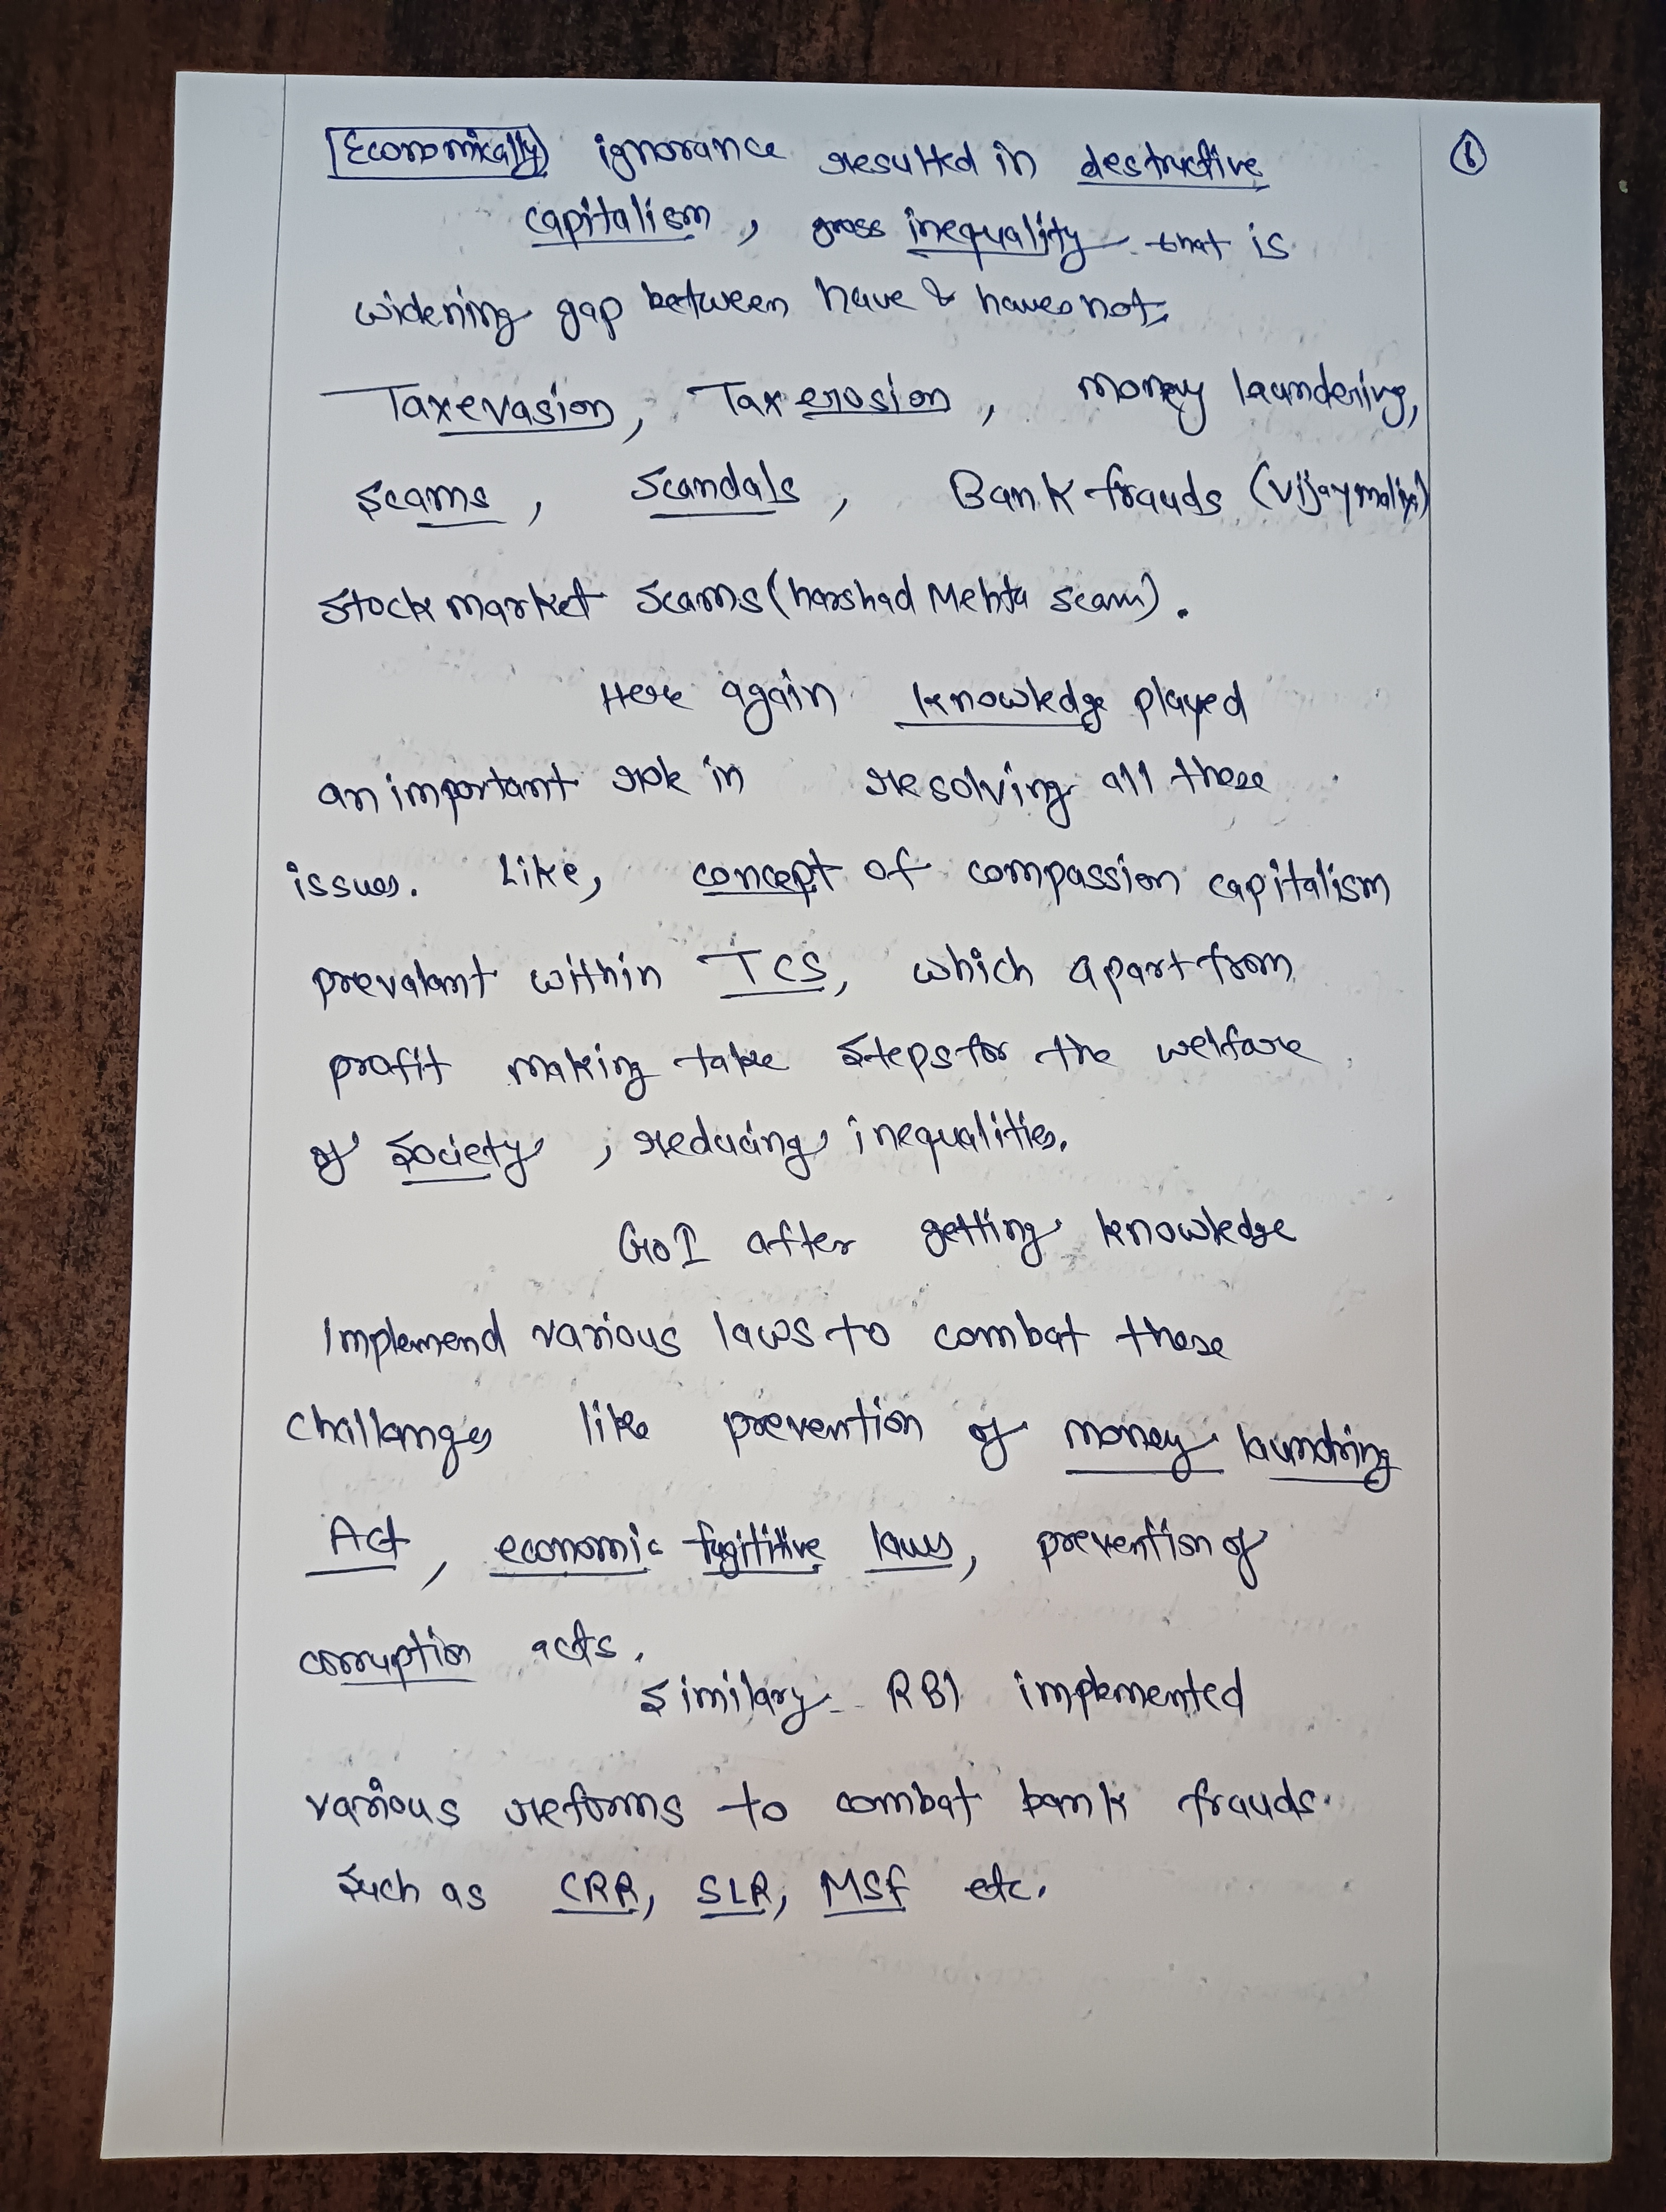 Economically ignorance resulted in destructive
⑥
capitalism, gross inequality that is
widening gap between have & haves not.
Tax evasion, Tax erosion, money laundering,
scams, scandals, Bank frauds (Vijay malya)
stock market scams (harshad Mehta scam).
Here again knowledge played
an important role in resolving all these
issues. Like, concept of compassion capitalism
prevalant within TCS, which apart from
profit making take steps for the welfare
of society, reducing inequalities.
GoI after getting knowledge
implemend various laws to combat these
challanges like prevention of money laundring
Act, economic fugititive laws, prevention of
corruption acts.
Similary RBI implemented
various reforms to combat bank frauds
such as CRR, SLR, MSF etc.